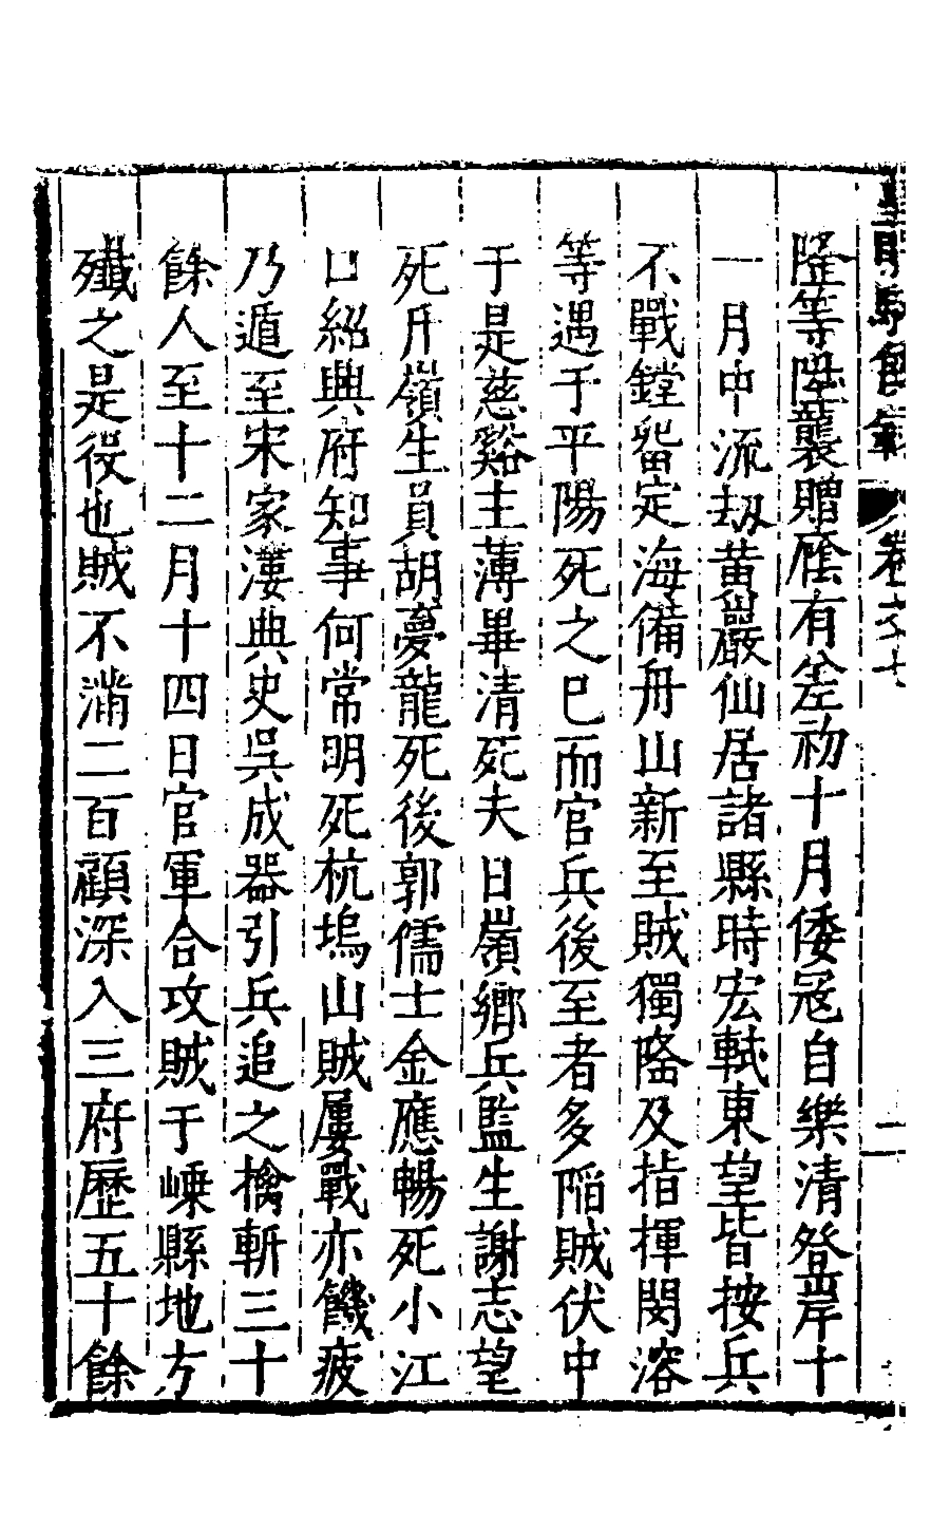 隆等陞襲贈廕有差初十月倭寇自樂清登岸十
一月中流刼黃巖仙居諸縣時宏軾東望皆按兵
不戰鏜留定海備舟山新至賊獨隆及指揮閔溶
等遇于平陽死之巳而官兵後至者多陷賊伏中
于是慈谿主薄畢清死夫日嶺鄉兵監生謝志望
死斤嶺生員胡夢龍死後郭儒士金應暢死小江
口紹興府知事何常明死杭塢山賊屢戰亦饑疲
乃遁至宋家漊典史吳成器引兵追之擒斬三十
餘人至十二月十四日官軍合攻賊于嵊縣地方
殲之是役也賊不滿二百顧深入三府歷五十餘